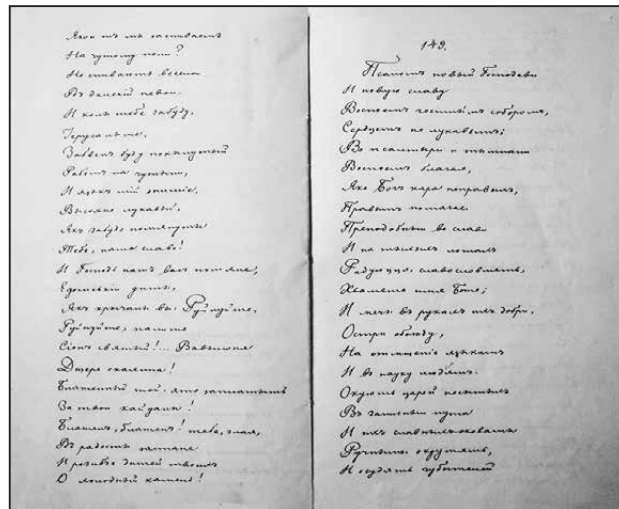 Якои мы заспиваемъ
На чужому поли?
Не спивають веселои
Въ далекій неволи.
И коли тебе забуду,
Іерусалиме,
Забвенъ буду покинутый
Рабомъ на чужыни,
И языкъ мій онимііе,
Высохне лукавый,
Якъ забуде помянуты
Тебе, наша славо!
И Господь нашъ васъ помяне,
Едомськіи диты,
Якъ кричалы вы: Руйнуйте,
Руйнуйте, палите
Сіонъ святый!... Вавилоня
Дщере окаянна!
Блаженный той, хто заплатыть
За твои кайданы!
Блаженъ, блаженъ! тебе, злая,
Въ радости застане
И розибье дитей твоихъ
О холодный камень!
149.
Псаломъ новый Господеви
И новую славу
Воспоемъ честнымъ соборомъ,
Сердцемъ не лукавымъ;
Во псалтыри и тимпани
Воспоемъ благая,
Яко Богъ кара неправыхъ,
Правымъ помагае.
Преподобныи во славѣ
И на тихыхъ ложахъ
Радуюцця, славословлять,
Хвалять имя Боже;
И мечи въ рукахъ ихъ добри,
Остри обоюду,
На отмщеніе языкамъ
И въ науку людямъ.
Окують царей неситыхъ
Въ зализніи пута
И ихъ славныхъ оковами
Ручными окрутять,
И осудять губителей